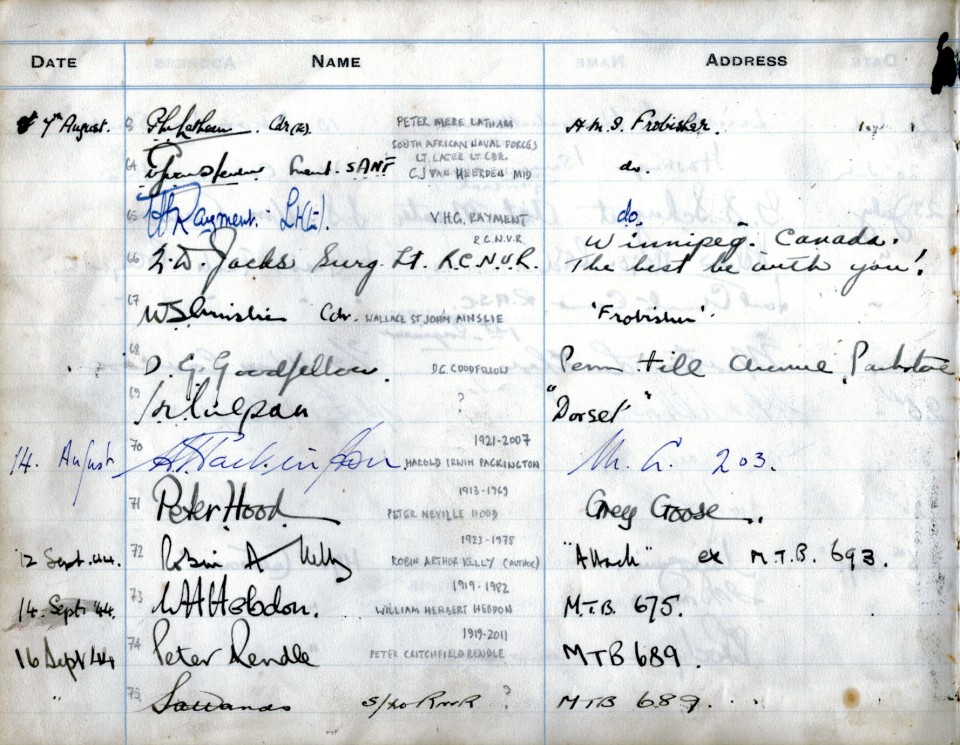 DATE NAME ADDRESS
7th August. Cdr (E). PETER MERE LATHAM H.M.S. Frobisher.
SOUTH AFRICAN NAVAL FORCES
64 Lieut. SANF LT. LATER LT CDR. do.
C J VAN HEERDEN MID
65 Rayment. Lt(E). V.H.G. RAYMENT do.
R.C.N.V.R. Winnipeg. Canada.
66 Jacks Surg. Lt. R.C.N.V.R. The best be with you!
67 WS Ainslie Cdr. WALLACE ST JOHN AINSLIE 'Frobisher'.
68
D. G. Goodfellow. D.G. GOODFELLOW Penn Hill Avenue, Parkstone
69 ? "Dorset"
70 1921-2007
14. August HAROLD IRWIN PACKINGTON 203.
1913-1969
71 Peter Hood PETER NEVILLE HOOD Grey Goose.
1923-1978
12 Sept. 44. 72 Robin A Kelly ROBIN ARTHUR KELLY (AUTHOR) "Attack" ex M.T.B. 693.
1919-1982
14. Sept 44. 73 WHHebdon. WILLIAM HERBERT HEBDON M.T.B. 675.
1919-2011
16 Sept 44 74 Peter Rendle PETER CRITCHFIELD RENDLE MTB 689.
" 75 ? MTB 689.